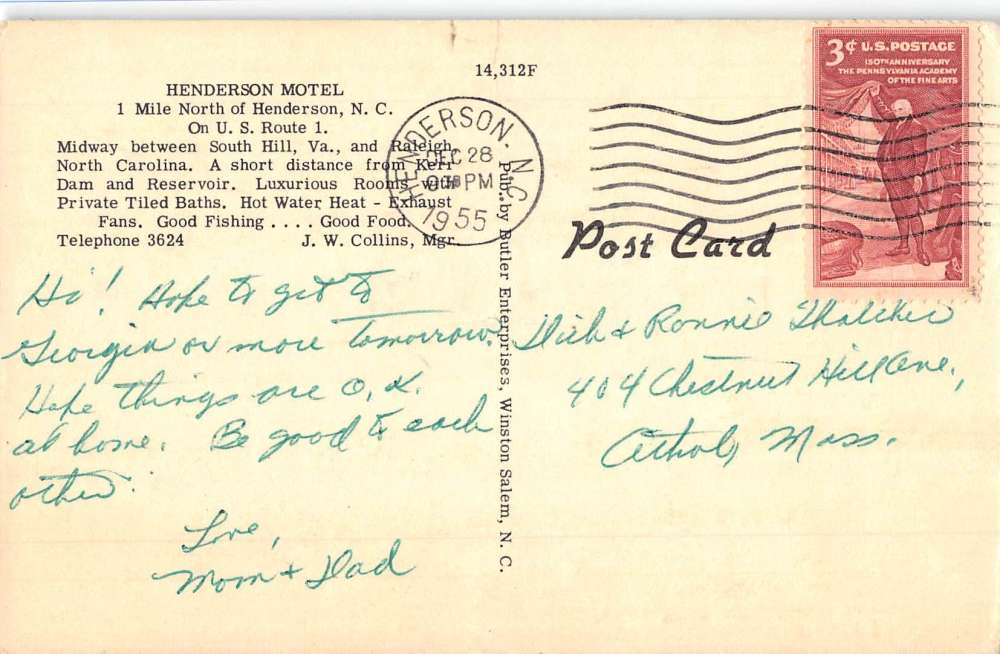 14,312F
HENDERSON MOTEL
1 Mile North of Henderson, N. C.
On U. S. Route 1.
Midway between South Hill, Va., and Raleigh,
North Carolina. A short distance from Kerr
Dam and Reservoir. Luxurious Rooms with
Private Tiled Baths. Hot Water Heat - Exhaust
Fans. Good Fishing .... Good Food.
Telephone 3624 J. W. Collins, Mgr.
HENDERSON. N.C.
DEC 28
PM
1955
3¢ U.S. POSTAGE
150TH ANNIVERSARY
THE PENNSYLVANIA ACADEMY
OF THE FINE ARTS
Post Card
Pub. by Butler Enterprises, Winston Salem, N. C.
Hi! Hope to get to
Georgia or more tomorrow.
Hope things are O.K.
at home. Be good to each
other.
Love,
Mom + Dad
Dick + Ronnie Thatcher
404 Chestnut Hill Ave.,
Athol, Mass.